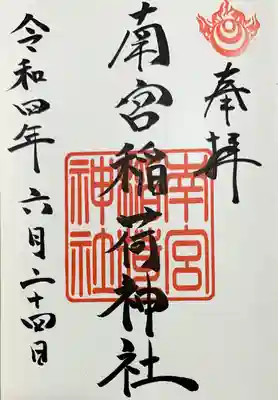 奉拝
南宮稲荷神社
南宮
稲荷
神社
令和四年 六月二十四日